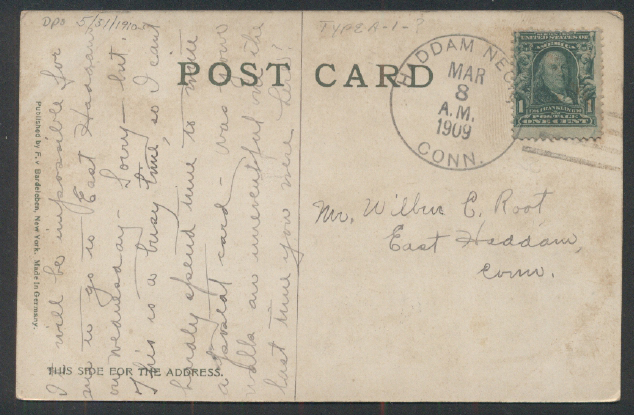 DPO 5/31/1910
TYPE A-1-?
POST CARD
HADDAM NECK
MAR
8
A.M.
1909
CONN.
UNITED STATES OF
AMERICA
FRANKLIN
1 POSTAGE 1
ONE CENT
Mr. Wilbur E. Root
East Haddam,
Conn.
I will be impossible for
me to go to East Haddam
on wednesday - Sorry - but
This is a busy time, so I can't
hardly spend time to write
a postal card - was your
walk an uneventful one the
last time you were here?
Published by F. v Bardeleben, New York. Made in Germany.
THIS SIDE FOR THE ADDRESS.